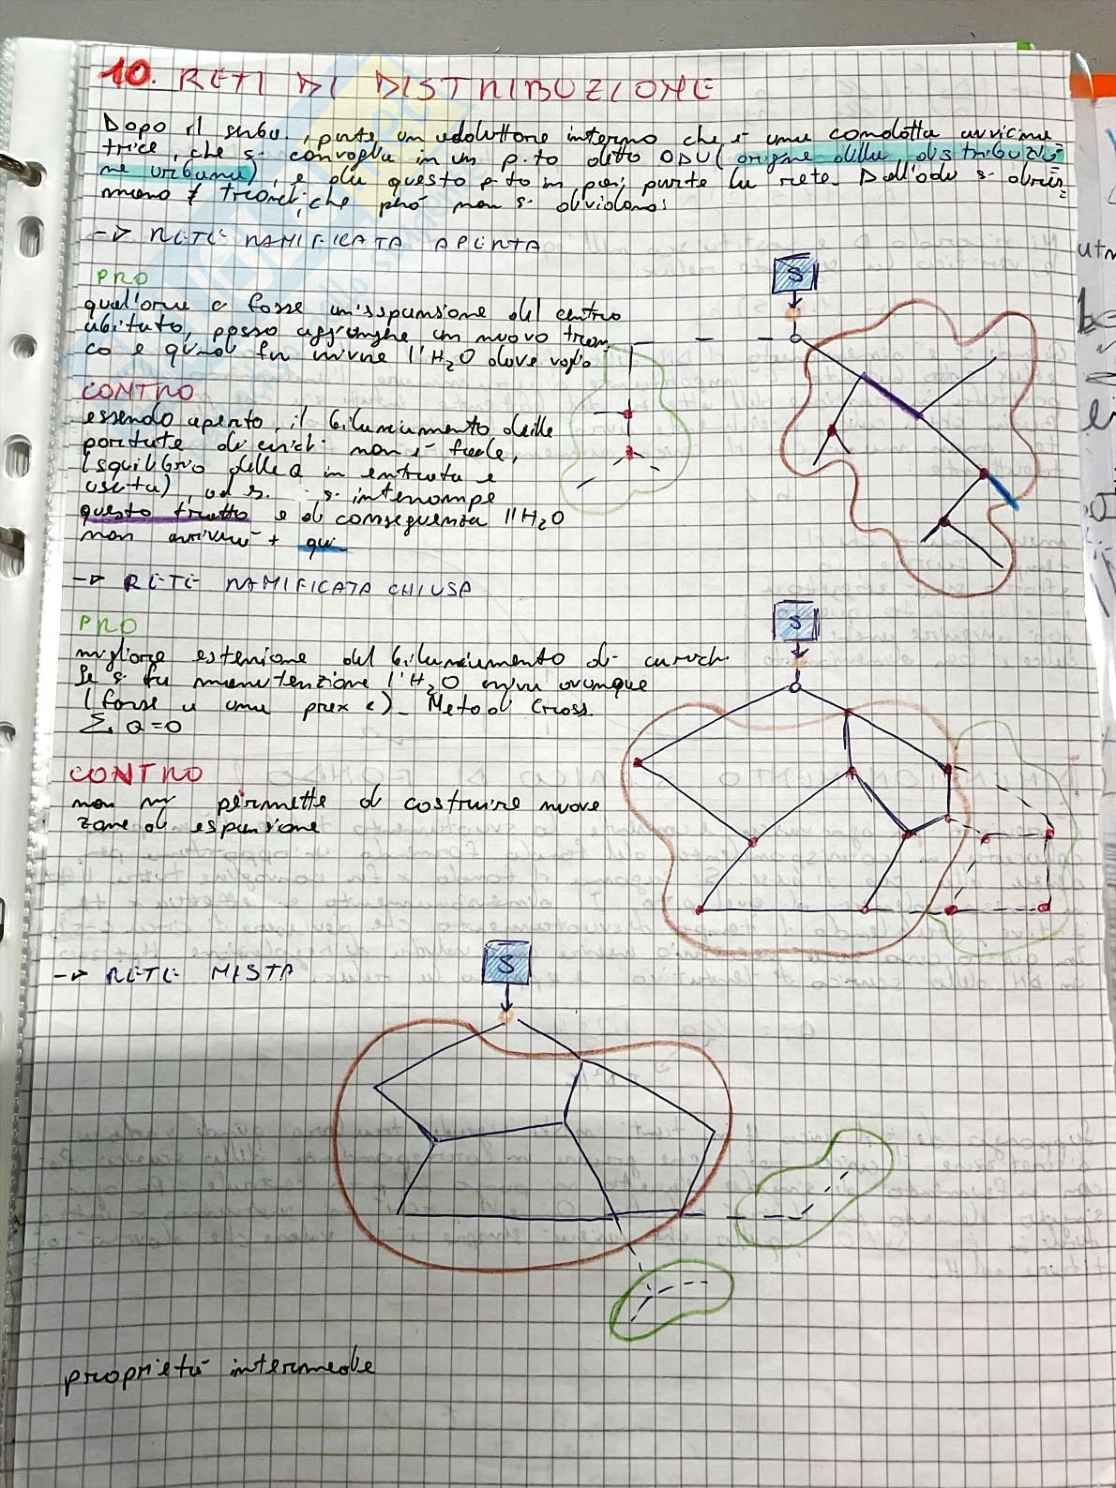 10. RETI DI DISTRIBUZIONE
Dopo il serba., parte un adduttore interno che è una condotta avvicina
trice, che si convoglia in un p.to detto ODU (origine della distribuzio
ne urbana), e da questo p.to in poi parte la rete. Dall'odu si
tronchi, che però non si dividono:
-> RETE RAMIFICATA APERTA
PRO
qual'ora ci fosse un'espansione del centro
abitato, posso aggiungere un nuovo tron
co e quindi far arrivare l'H2O dove voglio
CONTRO
essendo aperto, il bilanciamento delle
portate di carichi non è facile,
(squilibrio delle Q in entrata e
uscita), ad es. si interrompe
questo tratto e di conseguenza l'H2O
non arriverà + qui
-> RETE RAMIFICATA CHIUSA
PRO
migliore estensione del bilanciamento di carichi
Se si fa manutenzione l'H2O arriva ovunque
(forse a una prex e). Metodi Cross.
Σ Q=0
CONTRO
non mi permette di costruire nuove
zone di espansione
-> RETE MISTA
proprietà intermedie
S
S
S